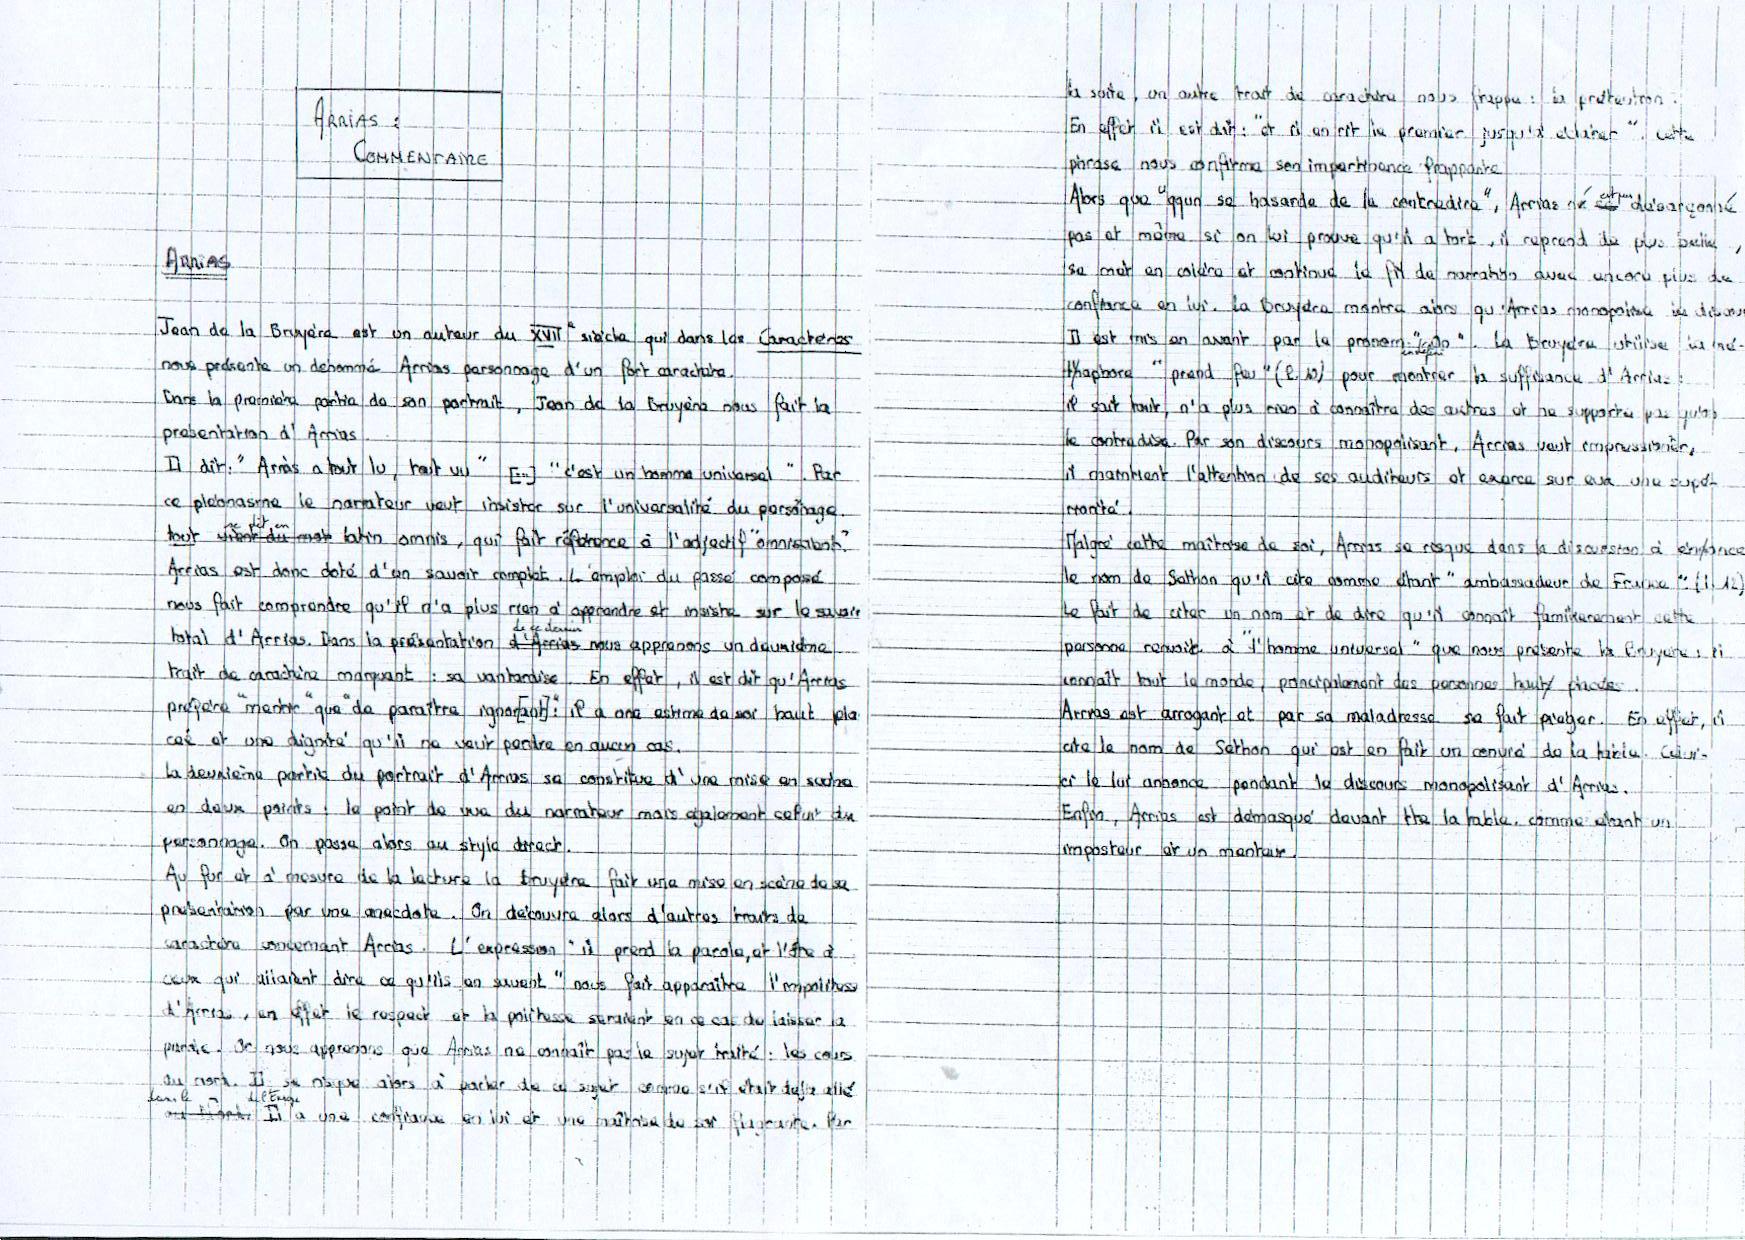 ARRIAS :
COMMENTAIRE
ARRIAS
Jean de la Bruyère est un auteur du XVIIe siècle qui dans les Caractères
nous présente un dénommé Arrias personnage d'un fort caractère.
Dans la première partie de son portrait, Jean de la Bruyère nous fait la
présentation d'Arrias.
Il dit : " Arrias a tout lu, tout vu " [...] " c'est un homme universel ". Par
ce pléonasme le narrateur veut insister sur l'universalité du personnage.
tout se dit en latin omnis, qui fait référence à l'adjectif "omniscient".
Arrias est donc doté d'un savoir complet. L'emploi du passé composé
nous fait comprendre qu'il n'a plus rien à apprendre et insiste sur le savoir
total d'Arrias. Dans la présentation de ce dernier nous apprenons un deuxième
trait de caractère marquant : sa vantardise. En effet, il est dit qu'Arrias
préfère "mentir" que "de paraître ignor[ant]" : il a une estime de soi haut pla
cée et une dignité qu'il ne veut perdre en aucun cas.
La deuxième partie du portrait d'Arrias se constitue d'une mise en scène
en deux points : le point de vue du narrateur mais également celui du
personnage. On passe alors au style direct.
Au fur et à mesure de la lecture la Bruyère fait une mise en scène de sa
présentation par une anecdote. On découvre alors d'autres traits de
caractère concernant Arrias. L'expression " il prend la parole, et l'ôte à
ceux qui allaient dire ce qu'ils en savent " nous fait apparaître l'impolitesse
d'Arrias, en effet le respect et la politesse seraient en ce cas de laisser la
parole. Or nous apprenons que Arrias ne connaît pas le sujet traité : les cours
du nord. Il se risque alors à parler de ce sujet comme s'il était déjà allé
Il a une confiance en lui et une maîtrise de soi flagrante. Par
la suite, un autre trait de caractère nous frappe : la prétention.
En effet il est dit : "et il en rit le premier jusqu'à éclater". Cette
phrase nous confirme son impertinence frappante
Alors que "qqun se hasarde de le contredire", Arrias n'est désarçonné
pas et même si on lui prouve qu'il a tort, il reprend de plus belle,
se met en colère et continue le fil de narration avec encore plus de
confiance en lui. La Bruyère montre alors qu'Arrias monopolise le discours
Il est mis en avant par le pronom indéfini "on". La Bruyère utilise la mé-
thaphore " prend feu " (l. 10) pour montrer la suffisance d'Arrias :
il sait tout, n'a plus rien à connaître des autres et ne supporte pas qu'on
le contredise. Par son discours monopolisant, Arrias veut impressionner,
il maintient l'attention de ses auditeurs et exerce sur eux une supé-
riorité.
Malgré cette maîtrise de soi, Arrias se risque dans la discussion à
le nom de Sethon qu'il cite comme étant " ambassadeur de France " (l. 12)
Le fait de citer un nom et de dire qu'il connaît familièrement cette
personne renvoit à "l'homme universel" que nous présente la Bruyère : il
connaît tout le monde, principalement des personnes haut placées.
Arrias est arrogant et par sa maladresse se fait piéger. En effet, il
cite le nom de Sethon qui est en fait un convive de la table. Celui-
ci le lui annonce pendant le discours monopolisant d'Arrias.
Enfin, Arrias est démasqué devant tte la table. comme étant un
imposteur et un menteur.